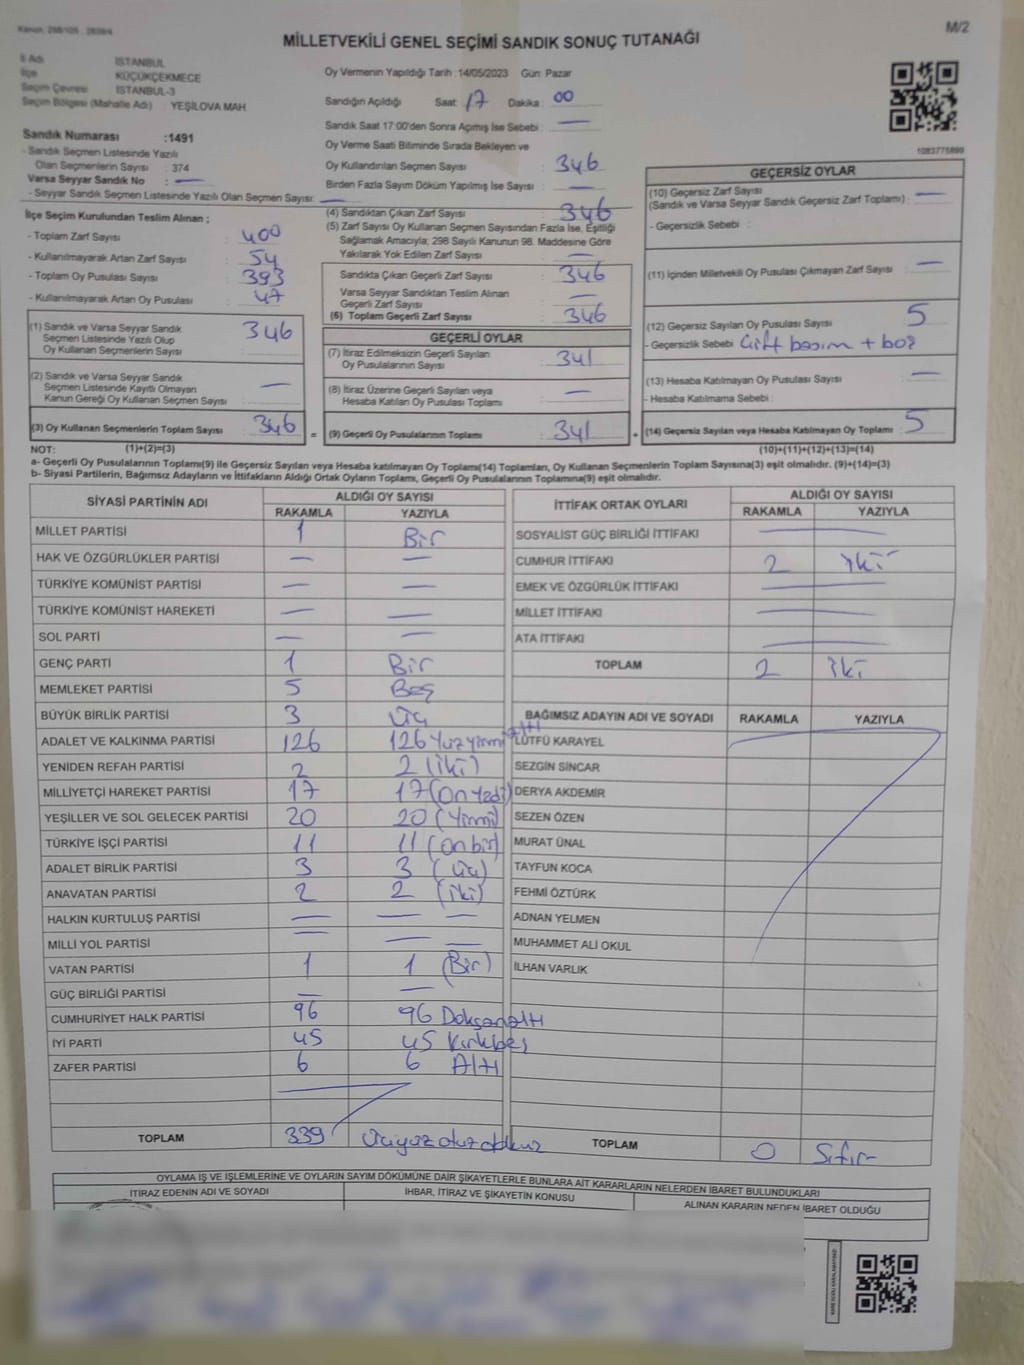 Kanun: 298/105 , 2839/4
M/2
MİLLETVEKİLİ GENEL SEÇİMİ SANDIK SONUÇ TUTANAĞI
İl Adı İSTANBUL
İlçe KÜÇÜKÇEKMECE
Seçim Çevresi İSTANBUL-3
Seçim Bölgesi (Mahalle Adı) : YEŞİLOVA MAH
Sandık Numarası :1491
- Sandık Seçmen Listesinde Yazılı
Olan Seçmenlerin Sayısı : 374
Varsa Seyyar Sandık No : —
- Seyyar Sandık Seçmen Listesinde Yazılı Olan Seçmen Sayısı: —
Oy Vermenin Yapıldığı Tarih : 14/05/2023 Gün: Pazar
Sandığın Açıldığı Saat: 17 Dakika : 00
Sandık Saat 17:00'den Sonra Açılmış İse Sebebi : —
Oy Verme Saati Bitiminde Sırada Bekleyen ve
Oy Kullandırılan Seçmen Sayısı : 346
Birden Fazla Sayım Döküm Yapılmış İse Sayısı : —
1083775899
İlçe Seçim Kurulundan Teslim Alınan ;
- Toplam Zarf Sayısı : 400
- Kullanılmayarak Artan Zarf Sayısı : 54
- Toplam Oy Pusulası Sayısı : 393
- Kullanılmayarak Artan Oy Pusulası : 47
(1) Sandık ve Varsa Seyyar Sandık
Seçmen Listesinde Yazılı Olup
Oy Kullanan Seçmenlerin Sayısı : 346
(2) Sandık ve Varsa Seyyar Sandık
Seçmen Listesinde Kayıtlı Olmayan
Kanun Gereği Oy Kullanan Seçmen Sayısı : —
(3) Oy Kullanan Seçmenlerin Toplam Sayısı : 346
(4) Sandıktan Çıkan Zarf Sayısı : 346
(5) Zarf Sayısı Oy Kullanan Seçmen Sayısından Fazla İse, Eşitliği
Sağlamak Amacıyla; 298 Sayılı Kanunun 98. Maddesine Göre
Yakılarak Yok Edilen Zarf Sayısı : —
Sandıkta Çıkan Geçerli Zarf Sayısı : 346
Varsa Seyyar Sandıktan Teslim Alınan
Geçerli Zarf Sayısı : —
(6) Toplam Geçerli Zarf Sayısı : 346
GEÇERLİ OYLAR
(7) İtiraz Edilmeksizin Geçerli Sayılan
Oy Pusulalarının Sayısı : 341
(8) İtiraz Üzerine Geçerli Sayılan veya
Hesaba Katılan Oy Pusulası Toplamı : —
= (9) Geçerli Oy Pusulalarının Toplamı : 341 +
GEÇERSİZ OYLAR
(10) Geçersiz Zarf Sayısı
(Sandık ve Varsa Seyyar Sandık Geçersiz Zarf Toplamı) : —
- Geçersizlik Sebebi :
(11) İçinden Milletvekili Oy Pusulası Çıkmayan Zarf Sayısı : —
(12) Geçersiz Sayılan Oy Pusulası Sayısı : 5
- Geçersizlik Sebebi : Çift basım + boş
(13) Hesaba Katılmayan Oy Pusulası Sayısı : —
- Hesaba Katılmama Sebebi :
(14) Geçersiz Sayılan veya Hesaba Katılmayan Oy Toplamı : 5
NOT: (1)+(2)=(3) (10)+(11)+(12)+(13)=(14)
a- Geçerli Oy Pusulalarının Toplamı(9) ile Geçersiz Sayılan veya Hesaba katılmayan Oy Toplamı(14) Toplamları, Oy Kullanan Seçmenlerin Toplam Sayısına(3) eşit olmalıdır. (9)+(14)=(3)
b- Siyasi Partilerin, Bağımsız Adayların ve İttifakların Aldığı Ortak Oyların Toplamı, Geçerli Oy Pusulalarının Toplamına(9) eşit olmalıdır.
SİYASİ PARTİNİN ADI ALDIĞI OY SAYISI
RAKAMLA YAZIYLA
MİLLET PARTİSİ 1 Bir
HAK VE ÖZGÜRLÜKLER PARTİSİ — —
TÜRKİYE KOMÜNİST PARTİSİ — —
TÜRKİYE KOMÜNİST HAREKETİ — —
SOL PARTİ — —
GENÇ PARTİ 1 Bir
MEMLEKET PARTİSİ 5 Beş
BÜYÜK BİRLİK PARTİSİ 3 Üç
ADALET VE KALKINMA PARTİSİ 126 126 Yüzyirmialtı
YENİDEN REFAH PARTİSİ 2 2 (iki)
MİLLİYETÇİ HAREKET PARTİSİ 17 17 (Onyedi)
YEŞİLLER VE SOL GELECEK PARTİSİ 20 20 (Yirmi)
TÜRKİYE İŞÇİ PARTİSİ 11 11 (onbir)
ADALET BİRLİK PARTİSİ 3 3 (üç)
ANAVATAN PARTİSİ 2 2 (iki)
HALKIN KURTULUŞ PARTİSİ — — —
MİLLİ YOL PARTİSİ — — —
VATAN PARTİSİ 1 1 (Bir)
GÜÇ BİRLİĞİ PARTİSİ — —
CUMHURİYET HALK PARTİSİ 96 96 Doksanaltı
İYİ PARTİ 45 45 Kırkbeş
ZAFER PARTİSİ 6 6 Altı
TOPLAM 339 Üçyüzotuzdokuz
İTTİFAK ORTAK OYLARI ALDIĞI OY SAYISI
RAKAMLA YAZIYLA
SOSYALİST GÜÇ BİRLİĞİ İTTİFAKI —
CUMHUR İTTİFAKI 2 iki
EMEK VE ÖZGÜRLÜK İTTİFAKI —
MİLLET İTTİFAKI —
ATA İTTİFAKI —
TOPLAM 2 iki
BAĞIMSIZ ADAYIN ADI VE SOYADI RAKAMLA YAZIYLA
LÜTFÜ KARAYEL
SEZGİN SİNCAR
DERYA AKDEMİR
SEZEN ÖZEN
MURAT ÜNAL
TAYFUN KOCA
FEHMİ ÖZTÜRK
ADNAN YELMEN
MUHAMMET ALİ OKUL
İLHAN VARLIK
TOPLAM 0 Sıfır
OYLAMA İŞ VE İŞLEMLERİNE VE OYLARIN SAYIM DÖKÜMÜNE DAİR ŞİKAYETLERLE BUNLARA AİT KARARLARIN NELERDEN İBARET BULUNDUKLARI
İTİRAZ EDENİN ADI VE SOYADI İHBAR, İTİRAZ VE ŞİKAYETİN KONUSU ALINAN KARARIN NEDEN İBARET OLDUĞU